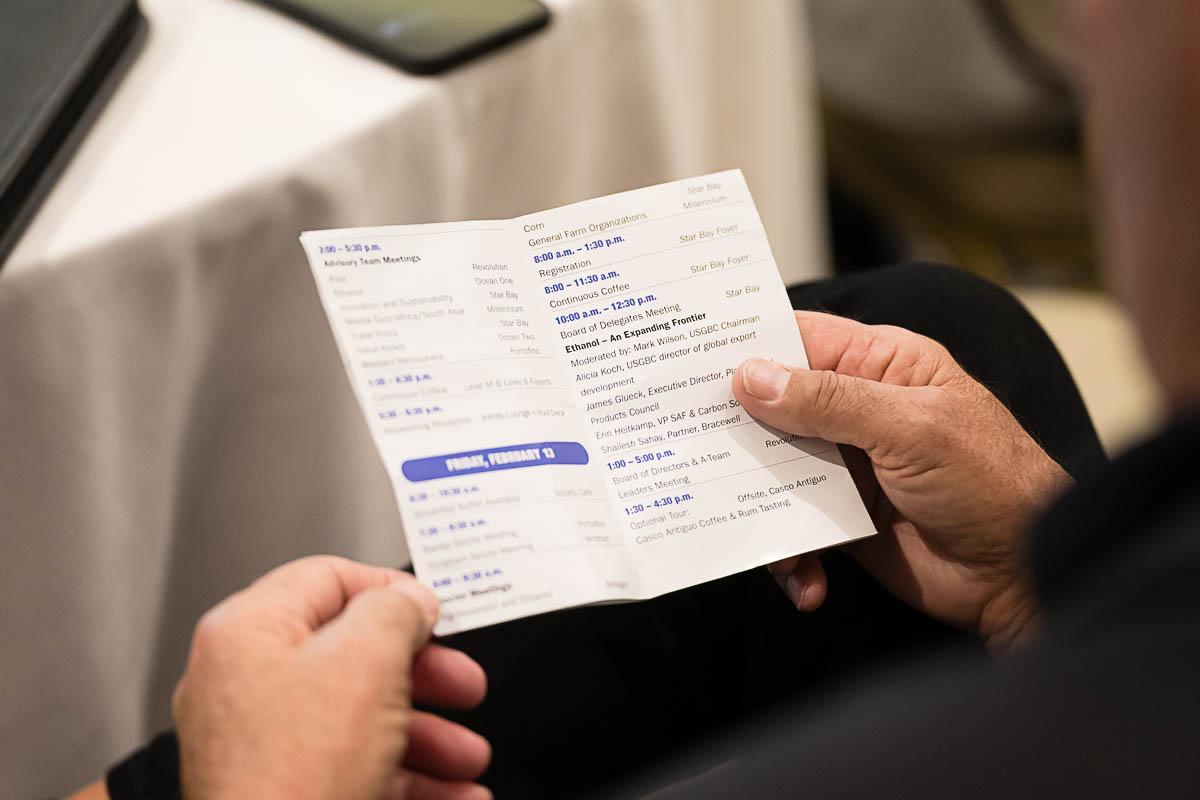 2:00 – 5:30 p.m.
Advisory Team Meetings
Asia Revolution
Ethanol Ocean One
Innovation and Sustainability Star Bay
Middle East/Africa/South Asia Millennium
Trade Policy Star Bay
Value-Added Ocean Two
Western Hemisphere Portofino
Continuous Coffee Level M & Level 6 Foyers
Networking Reception Infinity Lounge + Pool Deck
FRIDAY, FEBRUARY 13
Breakfast Buffet Available Society Cafe
Sorghum Sector Meeting
Corn Star Bay
General Farm Organizations Millennium
8:00 a.m. – 1:30 p.m.
Registration Star Bay Foyer
8:00 – 11:30 a.m.
Continuous Coffee Star Bay Foyer
10:00 a.m. – 12:30 p.m.
Board of Delegates Meeting Star Bay
Ethanol – An Expanding Frontier
Moderated by: Mark Wilson, USGBC Chairman
Alicia Koch, USGBC director of global export
development
James Glueck, Executive Director,
Products Council
Erin Heitkamp, VP SAF & Carbon
Shailesh Sahay, Partner, Bracewell
1:00 – 5:00 p.m.
Board of Directors & A-Team Revolution
Leaders Meeting
1:30 – 4:30 p.m.
Optional Tour: Offsite, Casco Antiguo
Casco Antiguo Coffee & Rum Tasting